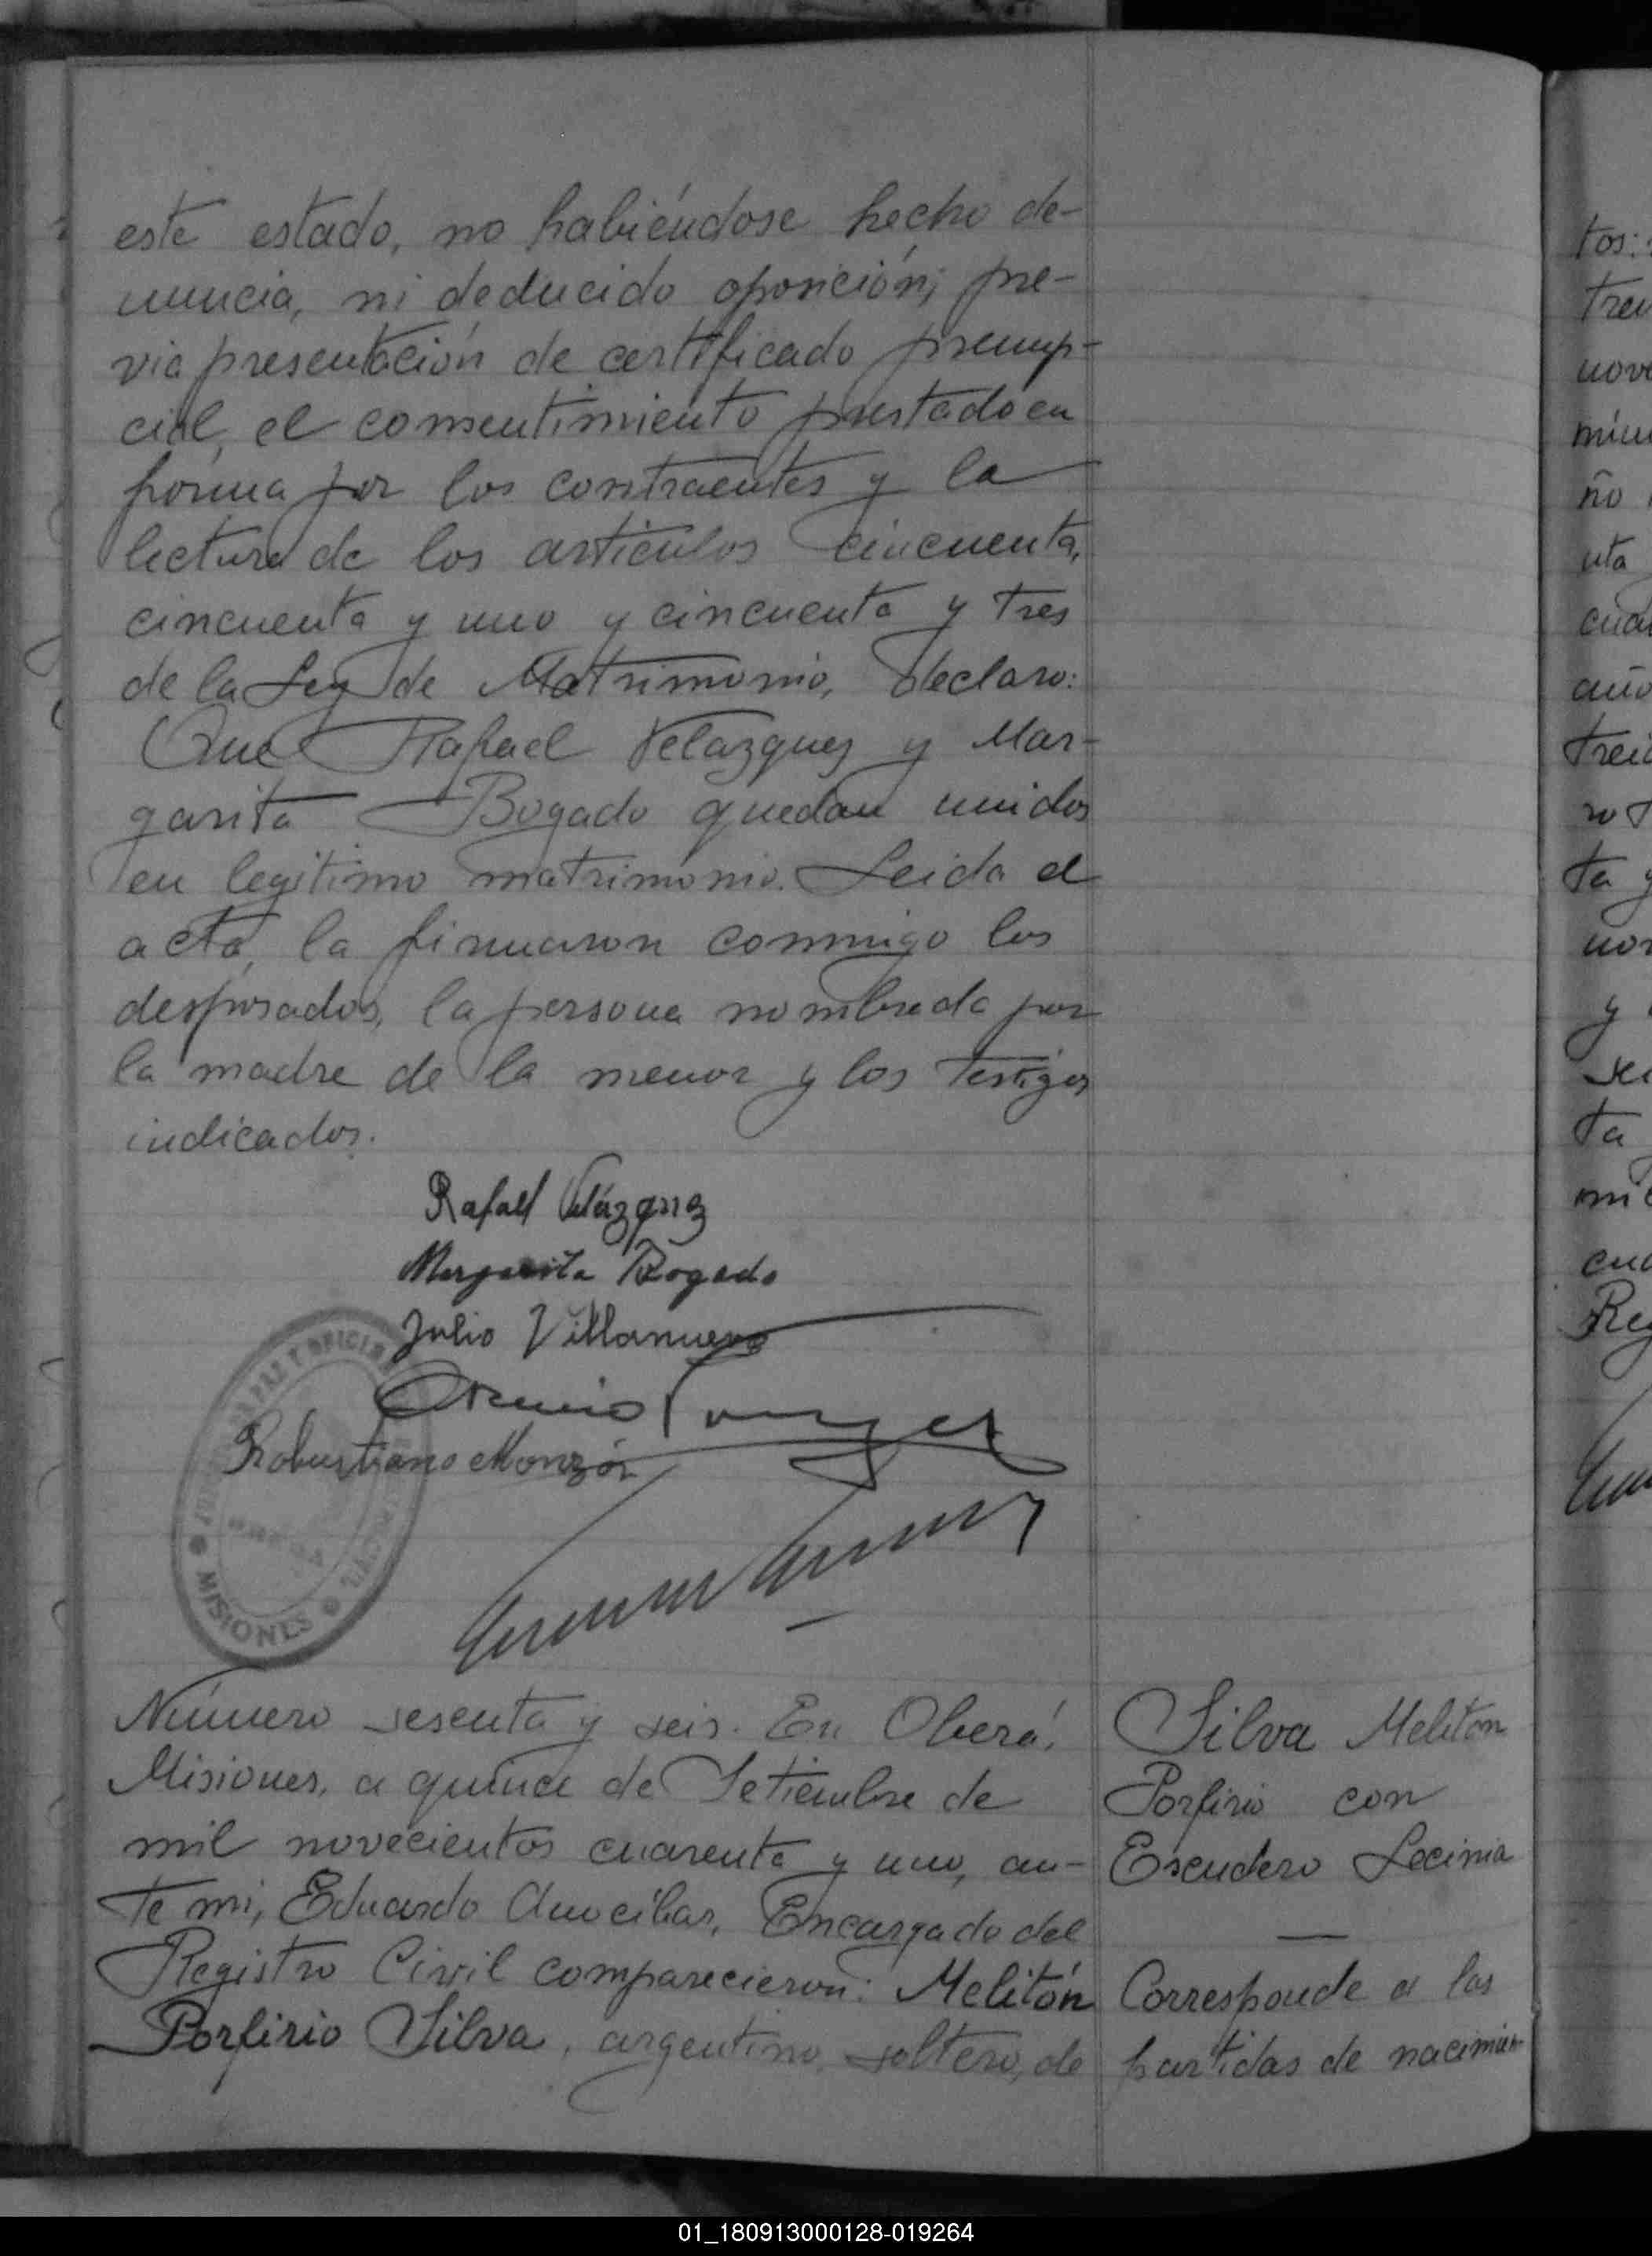 este estado, no habiéndose hecho de-
nuncia, ni deducido oposición; pre-
via presentación de certificado prenup-
cial, el consentimiento prestado en
forma por los contraentes y la
lectura de los artículos cincuenta,
cincuenta y uno y cincuenta y tres
de la Ley de Matrimonio, declaro:
Que Rafael Velazquez y Mar-
garita Bogado quedan unidos
en legitimo matrimonio. Leida el
acta, la firmaron conmigo los
desposados, la persona nombrada por
la madre de la menor y los testigos
indicados.
Rafael Velázquez
Margarita Bogado
Julio Villanueva
Robustiano Monzón
MISIONES
Número sesenta y seis. En Oberá,
Misiones, a quince de Setiembre de
mil novecientos cuarenta y uno, an-
te mi, Eduardo Encargado del
Registro Civil comparecieron: Melitón
Porfirio Silva, argentino, soltero, de
Silva Meliton
Porfirio con
Escudero Lecinia
Corresponde a las
partidas de nacimien-
tos:
ño
ta y
y
ta